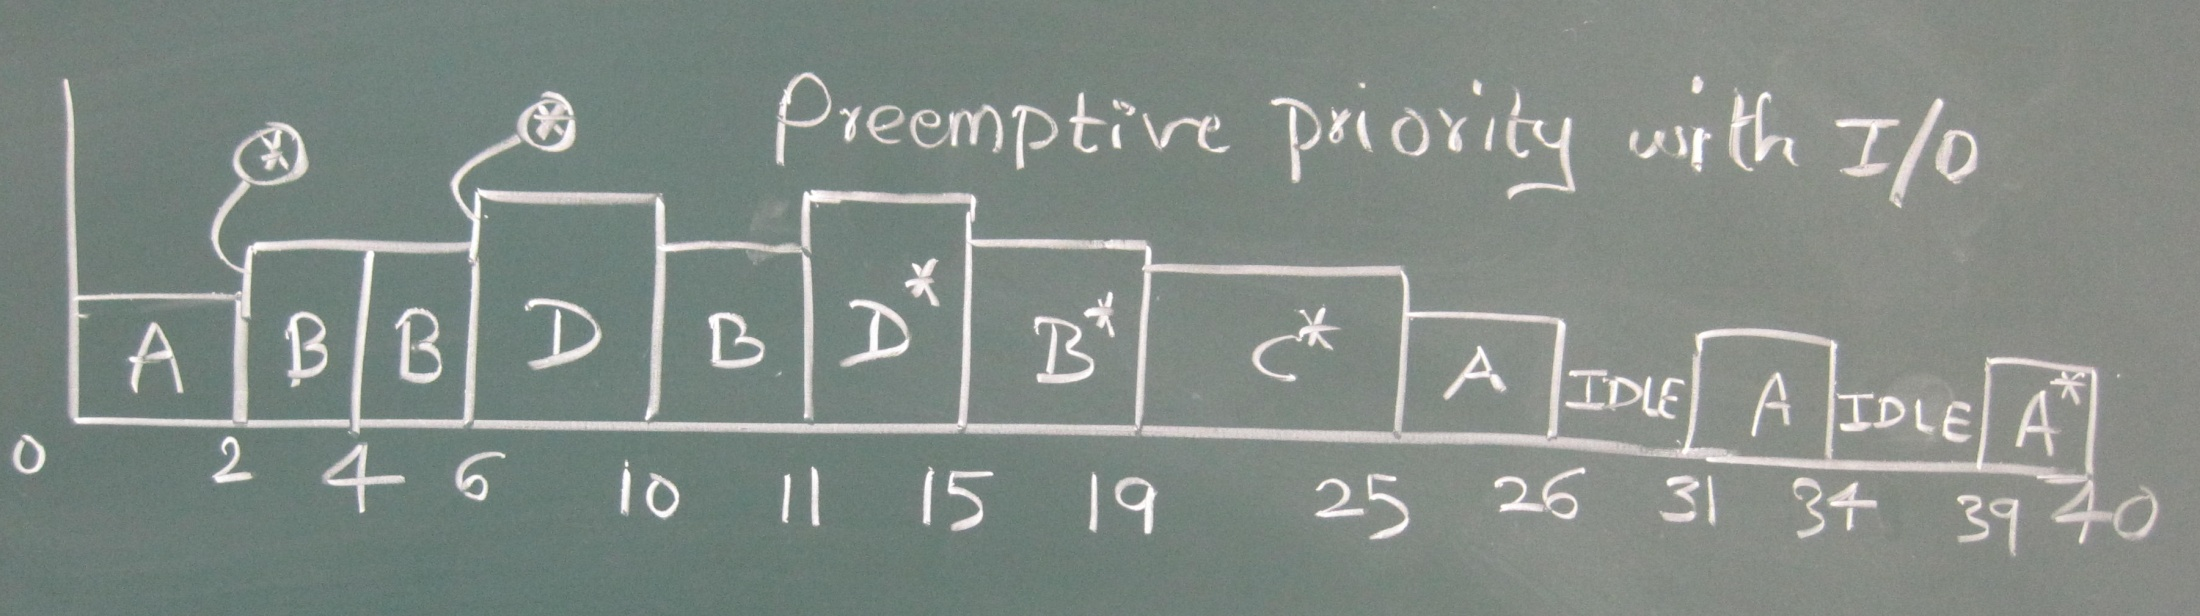 Preemptive priority with I/O
* *
A B B D B D* B* C* A IDLE A IDLE A*
0 2 4 6 10 11 15 19 25 26 31 34 39 40